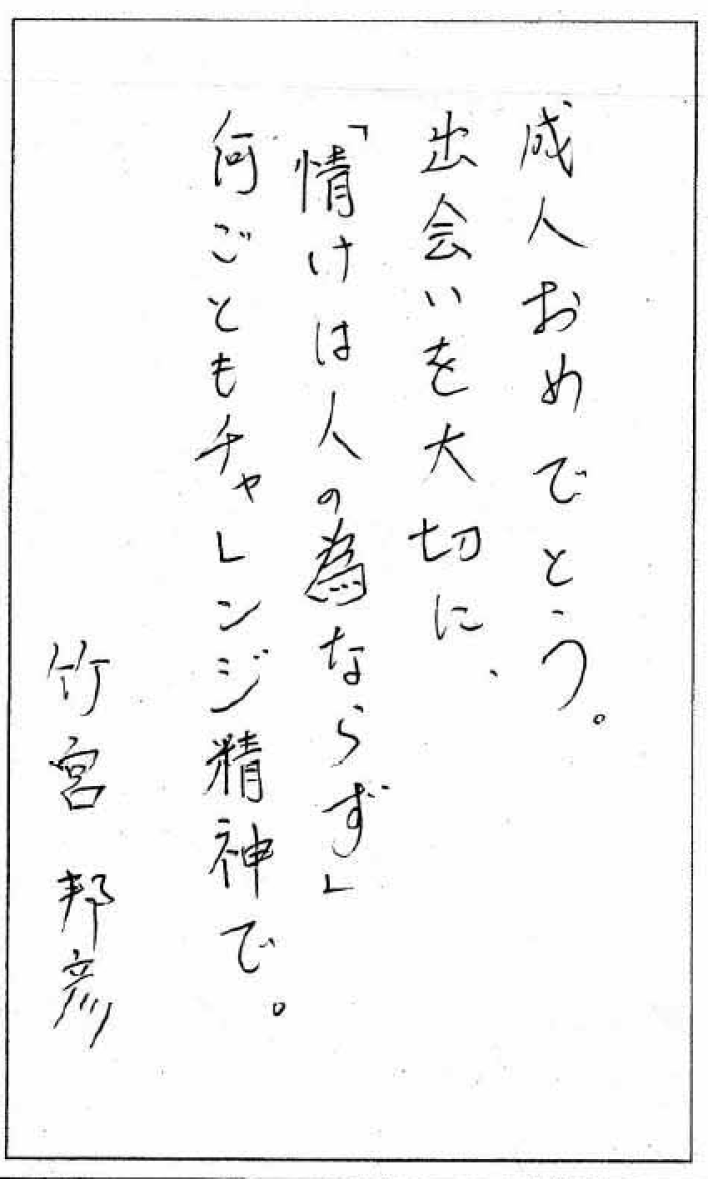 成人おめでとう。
出会いを大切に、
「情けは人の為ならず」
何ごともチャレンジ精神で。
竹宮 邦彦